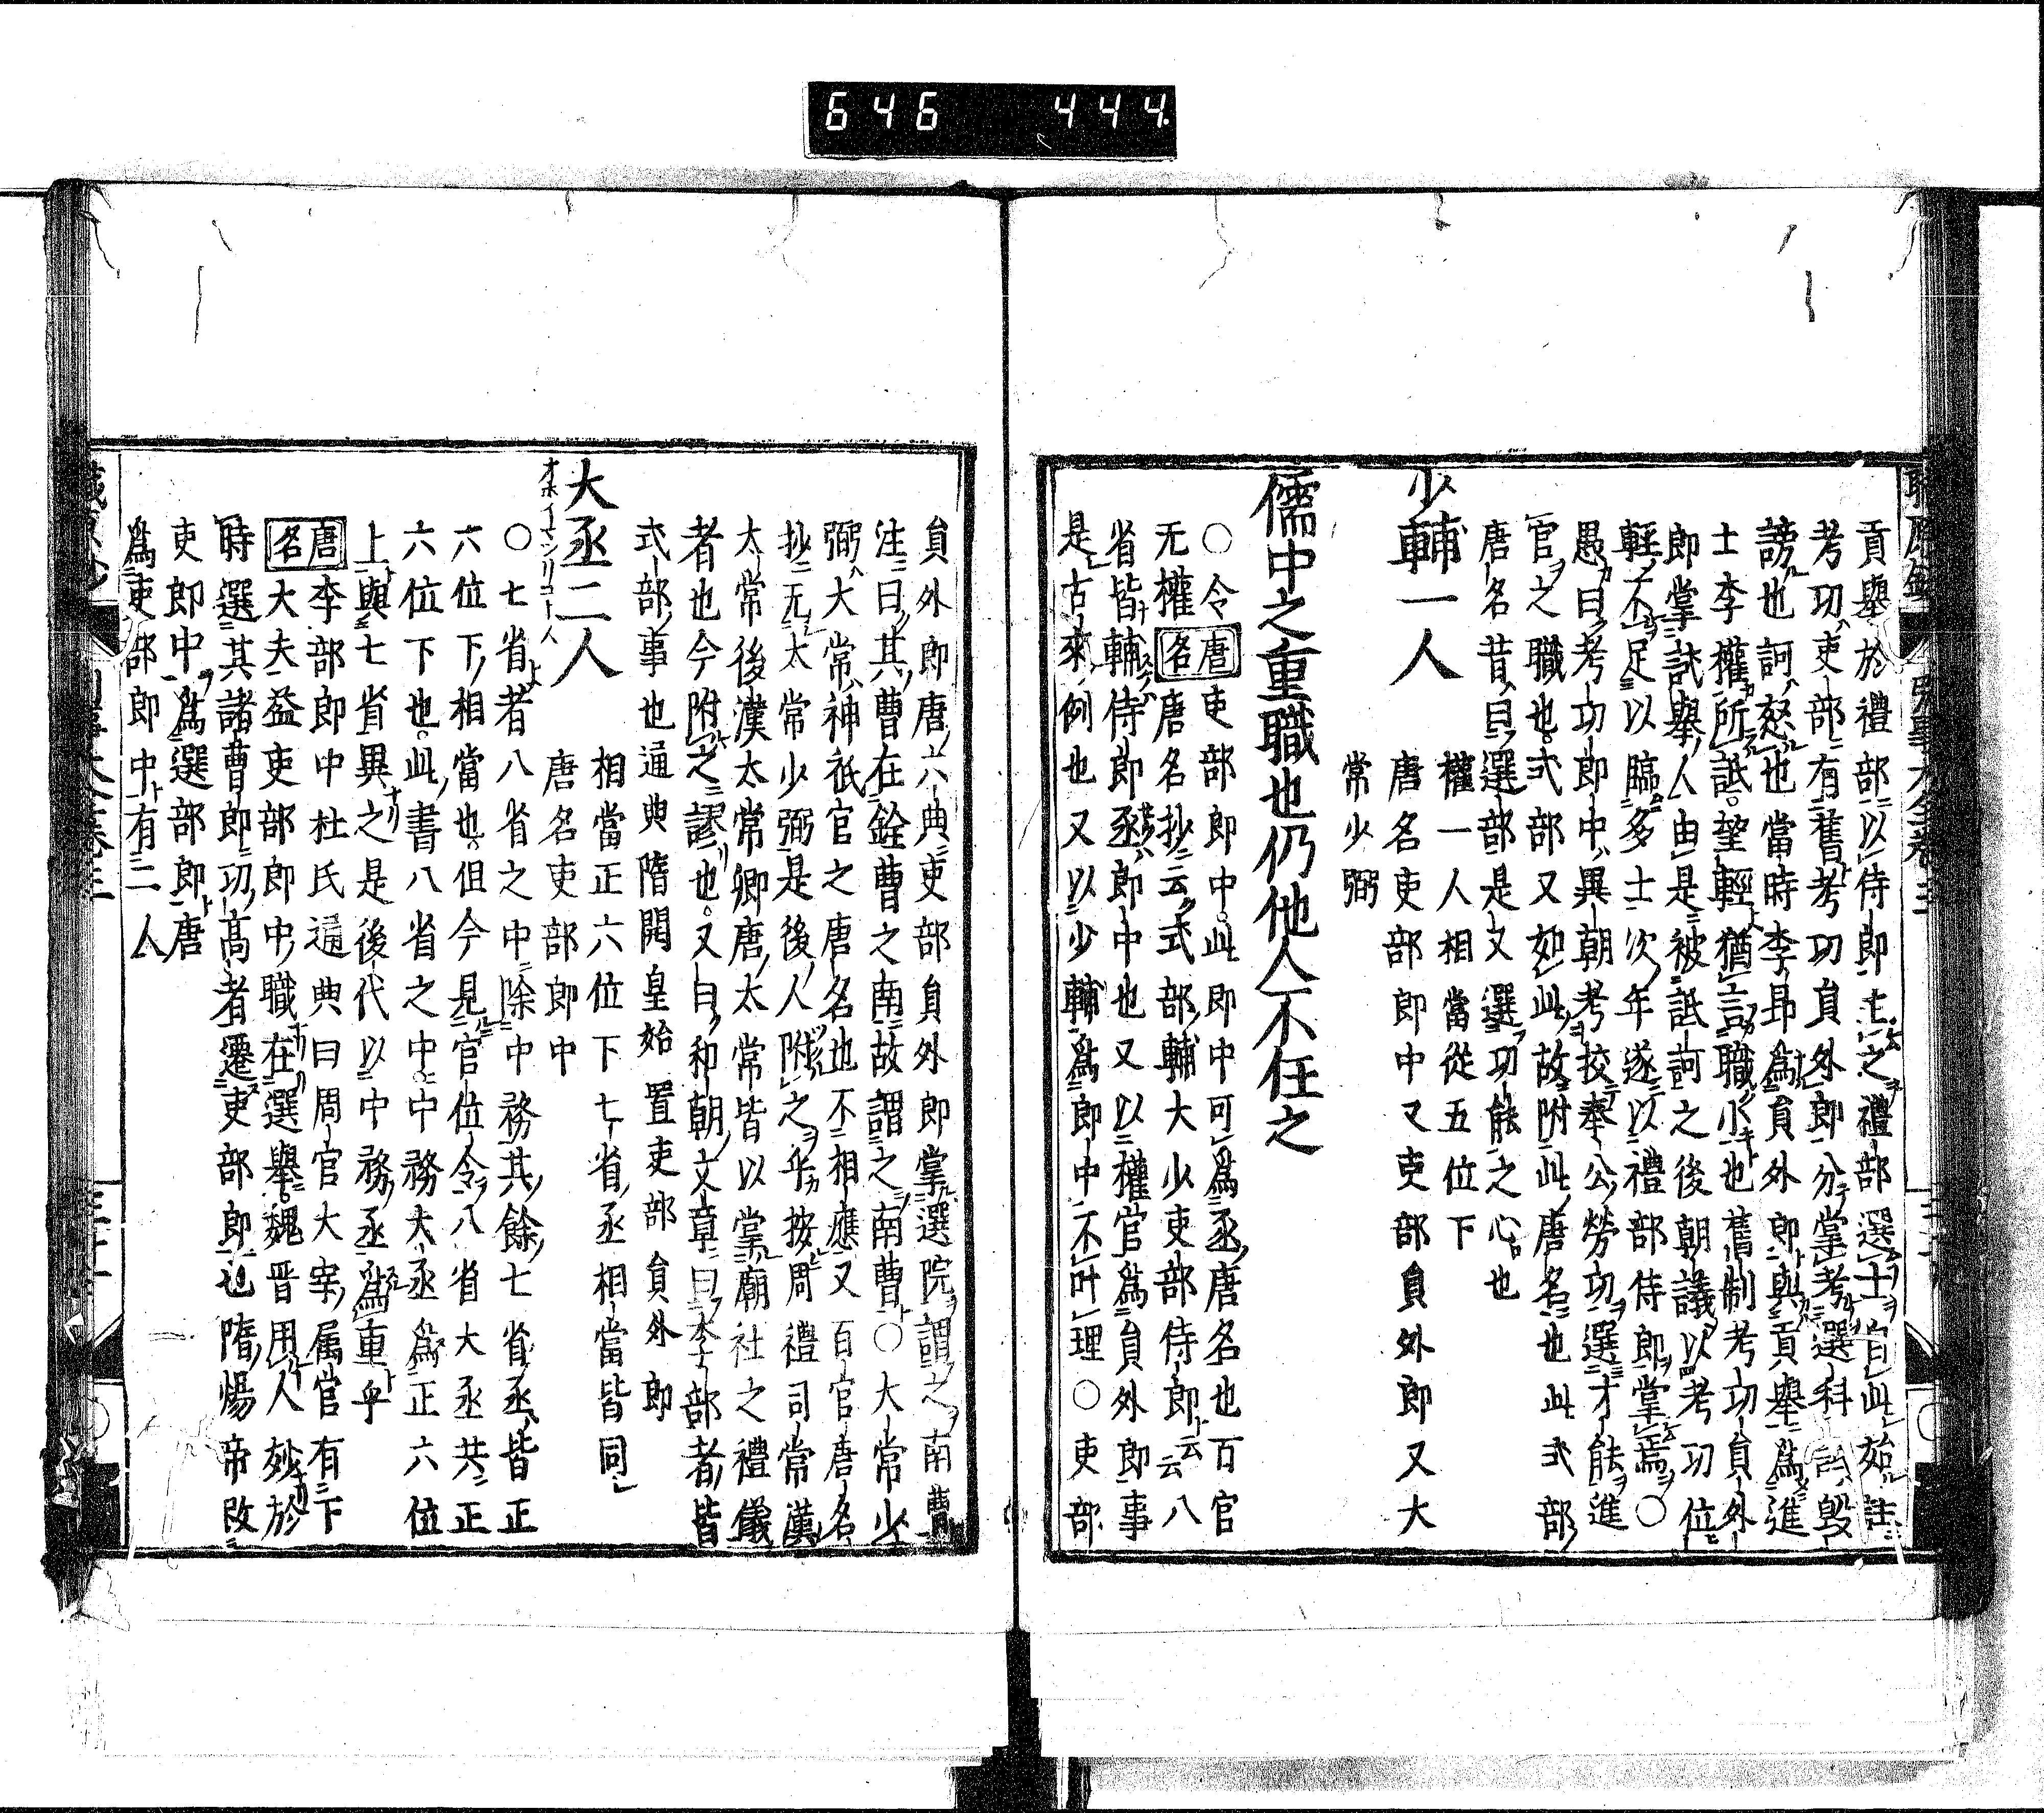 646 444
貢舉於禮部以侍郎主之禮部選士自此始註
考功吏部有舊考功員外郎分掌考選科毀
謗也訶怒也當時李昂爲員外郎與貢舉爲進
士李權所詆望輕猶言職小也舊制考功員外
郎掌試舉人由是被詆訶之後朝議以考功位
輕不足以臨多士次年遂以禮部侍郎掌焉○
愚曰考功郎中異朝考校奉公勞功選才能進
官之職也式部又如此故附此唐名也此式部
唐名昔選部是又選功能之心也
少輔一人
權一人相當從五位下
唐名吏部郎中又吏部員外郎又大
常少弼
儒中之重職也仍他人不任之
○令唐名吏部郎中此郎中可爲丞唐名也百官
无權唐名抄云式部輔大少吏部侍郎云云八
省皆輔侍郎丞郎中也又以權官爲員外郎事
是古來例也又以少輔爲郎中不叶理○吏部
員外郎唐六典吏部員外郎掌選院謂之南曹
注曰其曹在銓曹之南故謂之南曹○大常少
弼大常神祇官之唐名也不相應又百官唐名
抄无太常少弼是後人附之乎按周禮司常漢
太常後漢太常卿唐太常皆以掌廟社之禮儀
者也今附之謬也又曰和朝文章曰李部者皆
式部事也通典隋開皇始置吏部員外郎
大丞二人
相當正六位下七省丞相當皆同
唐名吏部郎中
○七省者八省之中除中務其餘七省丞皆正
六位下相當也但今見官位令八省大丞共正
六位下也此書八省之中中務大丞爲正六位
上與七省異之是後代以中務丞爲重乎
唐名李部郎中杜氏通典曰周官大宰属官有下
大夫益吏部郎中職在選舉魏晋用人妙於
時選其諸曹郎功高者遷吏部郎也隋煬帝改
吏郎中爲選部郎唐
爲吏部郎中有二人